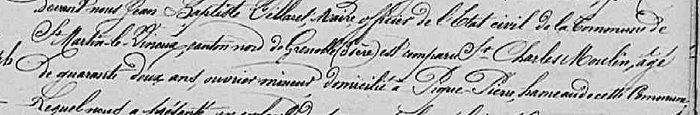 devant nous Jean Baptiste Villaret Maire officier de l'Etat civil de la Commune de
St Martin-le-Vinoux, canton nord de Grenoble (Isère) est comparu Sr Charles Moulin, âgé
de quarante deux ans, ouvrier mineur, domicilié à Pique-Pierre, hameau de cette Commune,
Lequel nous a présenté